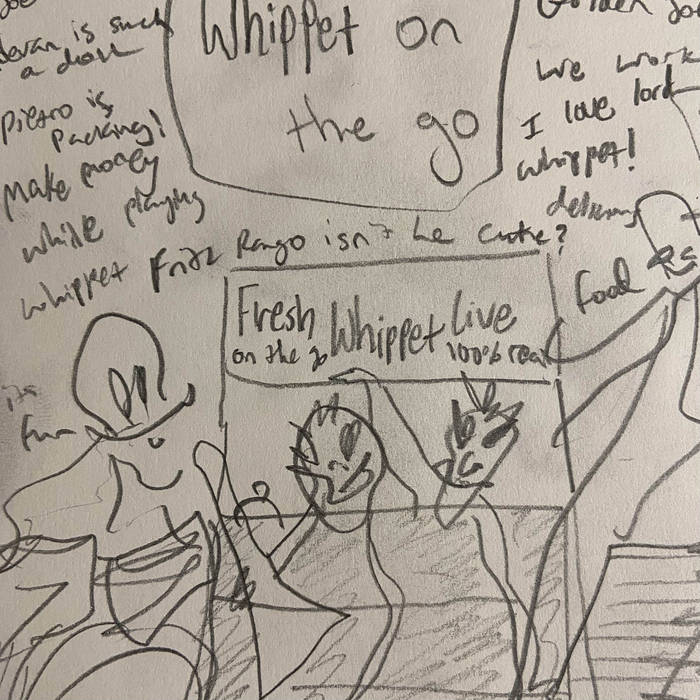 Whippet on
the go
Devan is such
a
Pietro is
Packing!
Make money
while playing
whippet Fritz Rango isn't he cute?
We work
I love lord
whippet!
delivery
food
Fresh Whippet Live
on the go 100% real
its
fun